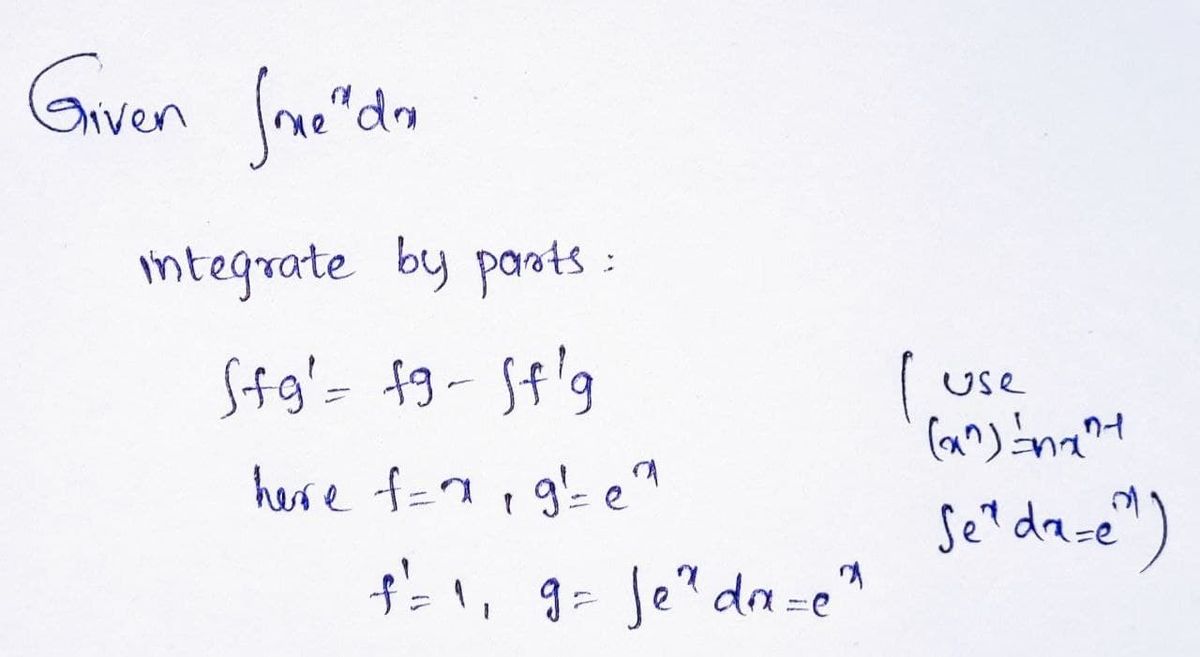 Given ∫xeˣdx
integrate by parts :
∫fg' = fg - ∫f'g
here f=x , g'=eˣ
f'=1, g= ∫eˣdx=eˣ
( use
(xⁿ)'=nxⁿ⁻¹
∫eˣdx=eˣ)